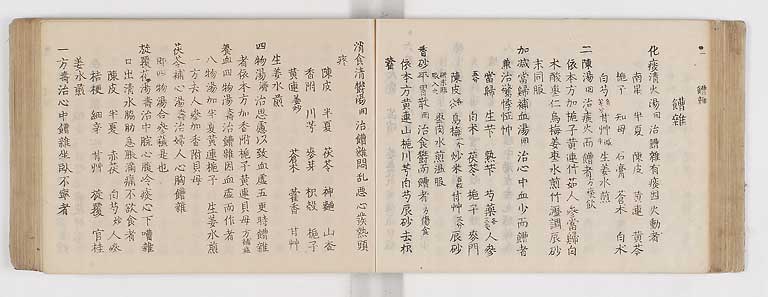 嘈雜
嘈雜
化痰清火湯 治嘈雜有痰因火動者
南星 半夏 陳皮 黃連 黃芩
梔子 知母 石膏 蒼朮 白朮
白芍 甘草 生姜水煎
二陳湯 治痰火而嘈者
依本方加梔子黃連竹茹人參當歸白
朮酸棗仁烏梅姜棗水煎竹瀝調辰砂
末同服
加減當歸補血湯 治心中血少而嘈者
兼治驚悸怔忡
當歸 生芐 熟芐 芍藥 人參
白朮 茯苓 梔子 麥門
陳皮 烏梅 炒米 甘草 辰砂
棗肉水煎溫服
香砂平胃散 治食鬱而嘈者 方傷食
依本方黃連山梔川芎白芍辰砂去枳
藿
消食清鬱湯 治嘈雜悶乱惡心發熱頭
疼
陳皮 半夏 茯苓 神麯 山査
香附 川芎 麥芽 枳殼 梔子
黃連姜炒 蒼朮 藿香 甘草
生姜水煎
四物湯 治思慮以致血虛五更時嘈雜
者依本方加香附梔子黃連貝母方補益
養血四物湯 治嘈雜因血虛而作者
八物湯加半夏黃連梔子 生姜水煎
一方去人參加香附貝母
茯苓補心湯 治婦人心胸嘈雜
即四物湯合參蘇是也
旋覆花湯 治中脘心腹冷痰心下嘈雜
口出清水脇肋急脹滿痛不欲食者
陳皮 半夏 赤茯 白芍 人參
桔梗 細辛 甘草 旋覆 官桂
姜水煎
一方 治心中嘈雜坐臥不寧者